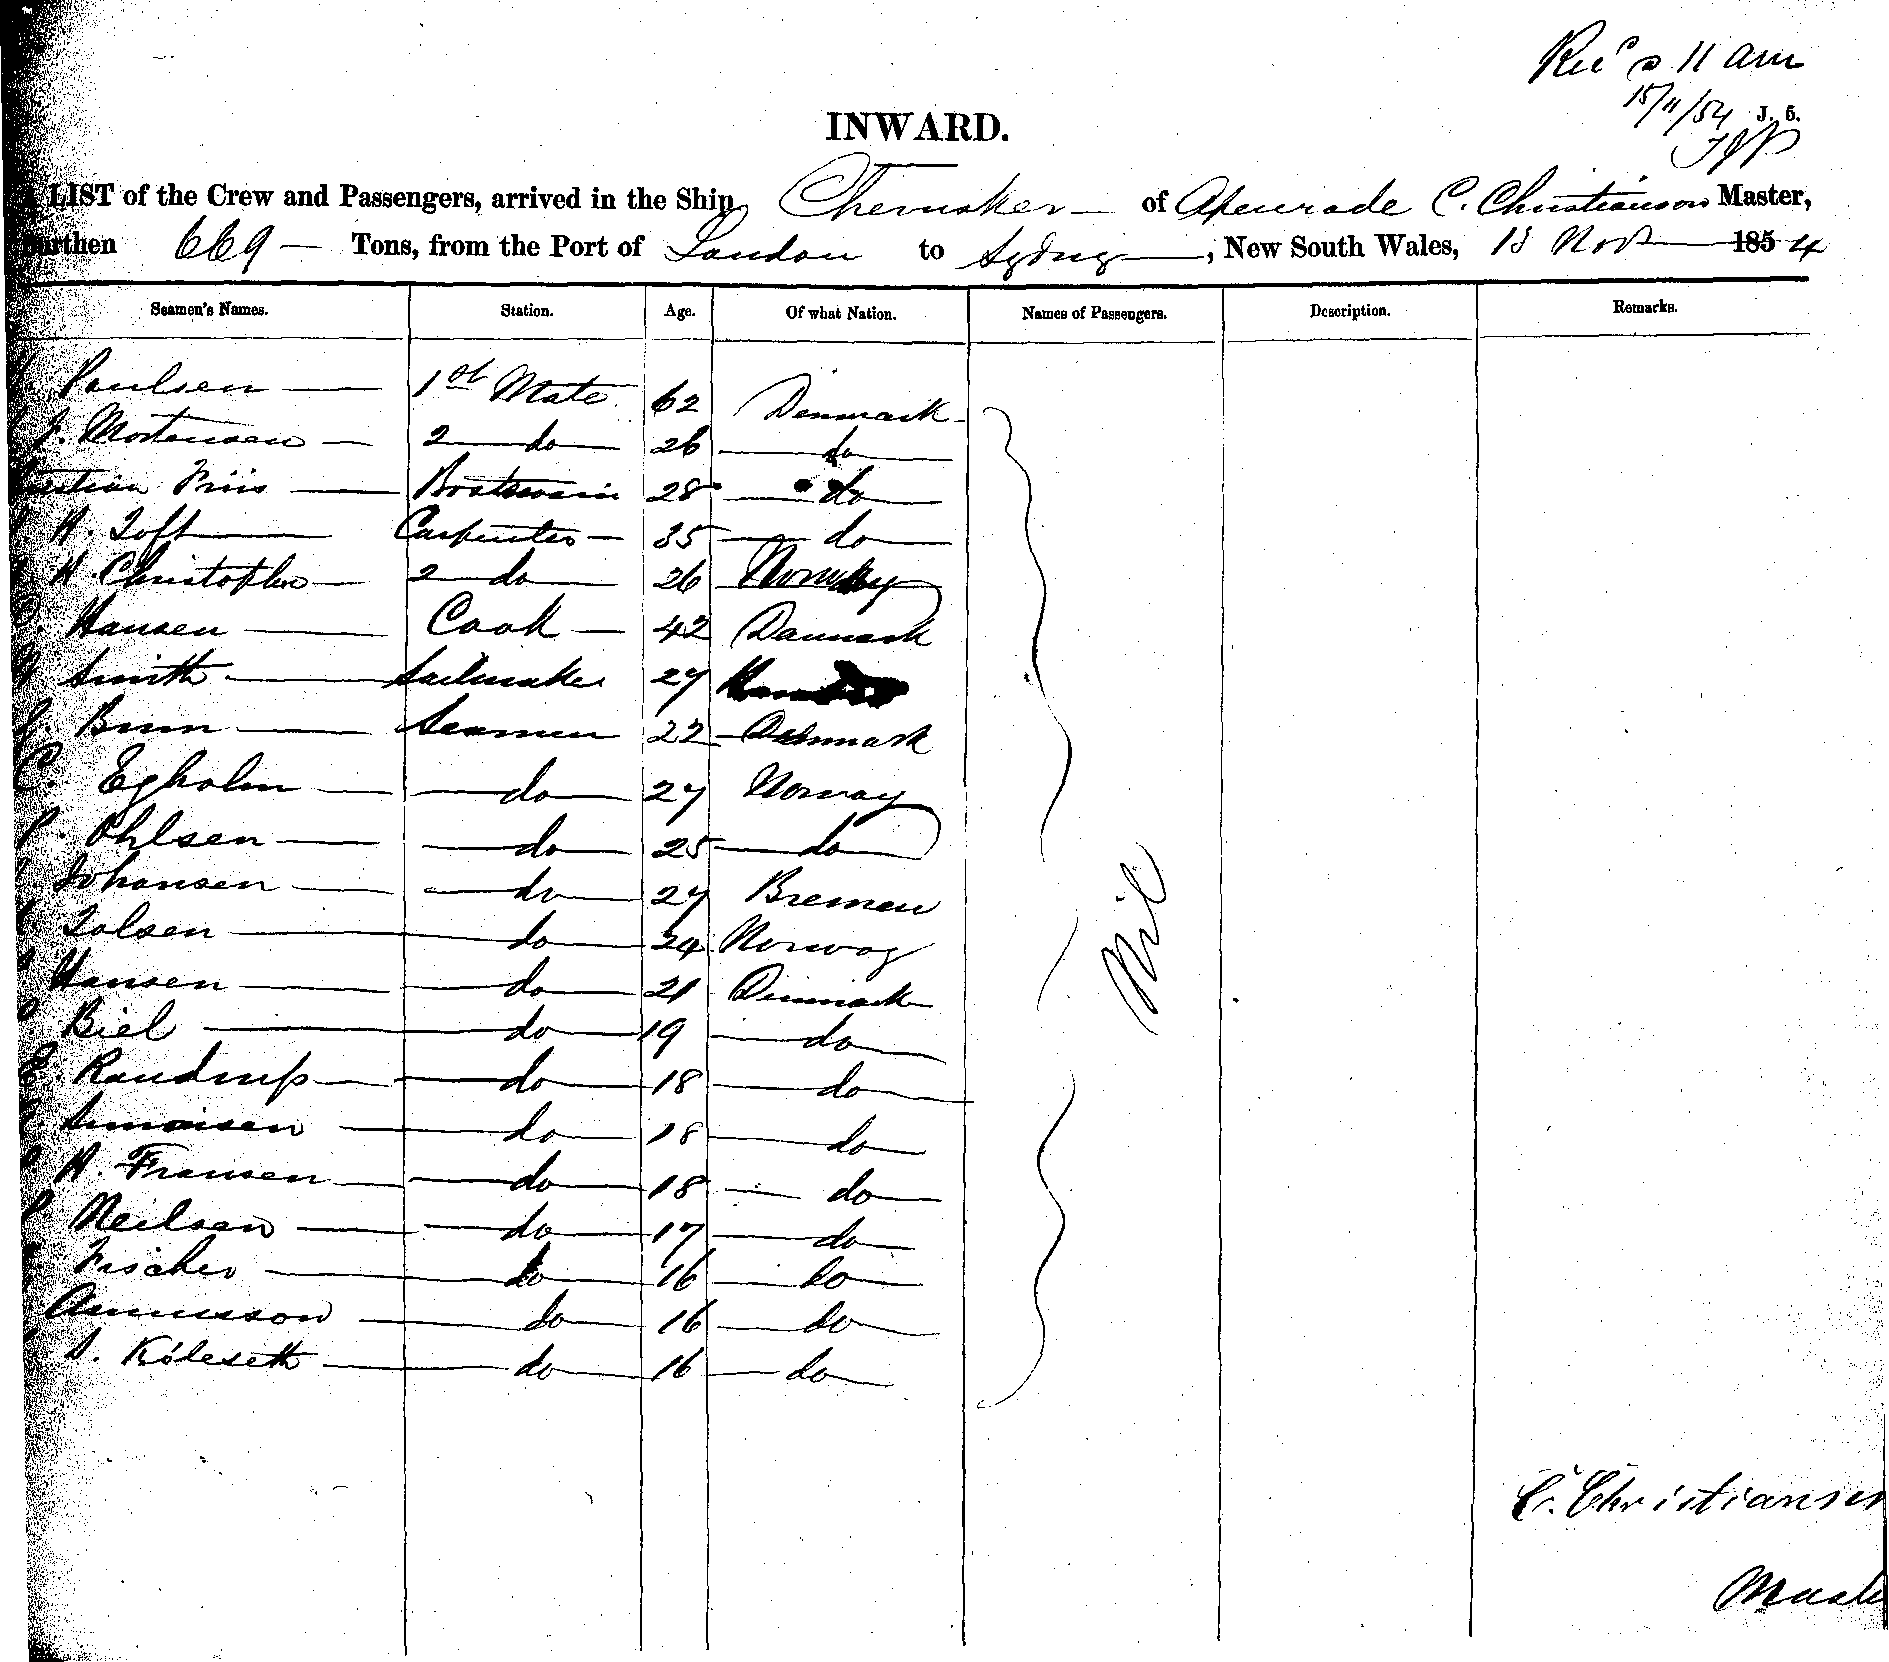 Rec'd @ 11 am
15/11/54 J. 5.
INWARD.
LIST of the Crew and Passengers, arrived in the Ship Cherusker of Apenrade C. Christianson Master,
Burthen 669 Tons, from the Port of London to Sydney, New South Wales, 13 Nov 1854
Seamen's Names. Station. Age. Of what Nation. Names of Passengers. Description. Remarks.
Paulsen 1st Mate 62 Denmark
J. Mortensen 2 do 26 do
Friis Boatswain 28 do
H. Toft Carpenter 35 do
H. Christopher 2 do 26 Norway
Hansen Cook 42 Danmark
Smith Sailmaker 27
Brun Seamen 22 Denmark
C. Egholm do 27 Norway
P. Ohlsen do 25 do
Johansen do 27 Bremen
Tolsen do 24 Norway
Hansen do 21 Denmark
Biel do 19 do
Randrup do 18 do
Simonsen do 18 do
H. Fransen do 18 do
P. Neilsen do 17 do
Fischer do 16 do
Asmusson do 16 do
do 16 do
Nil
C. Christiansen
Master